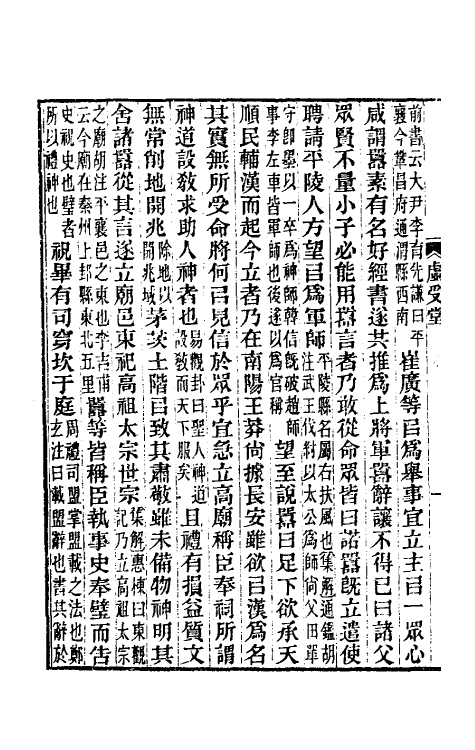 虛受堂
前書云大尹李育先謙曰平
襄今鞏昌府通渭縣西南
崔廣等㠯爲舉事宜立主㠯一眾心
咸謂囂素有名好經書遂共推爲上將軍囂辭讓不得已曰諸父
眾賢不量小子必能用囂言者乃敢從命眾皆曰諾囂旣立遣使
聘請平陵人方望㠯爲軍師
平陵縣名屬右扶風也集解通鑑胡
注武王伐紂以太公爲師尚父田單
守卽墨以一卒爲神師韓信旣破趙師
事李左車皆軍師也後遂以爲官稱
望至說囂曰足下欲承天
順民輔漢而起今立者乃在南陽王莽尚據長安雖欲㠯漢爲名
其實無所受命將何㠯見信於眾乎宜急立高廟稱臣奉祠所謂
神道設敎求助人神者也
易觀卦曰聖人神道
設敎而天下服矣
且禮有損益質文
無常削地開兆
除地以
開兆域
茅茨土階㠯致其肅敬雖未備物神明其
舍諸囂從其言遂立廟邑東祀高祖太宗世宗
集解惠棟曰東觀
記乃立高祖太宗
之廟胡注平襄邑之東也李吉甫
云今廟在秦州上邽縣東北五里
囂等皆稱臣執事史奉璧而告
史祝史也璧者
所以禮神也
祝畢有司穿坎于庭
周禮司盟掌盟載之法也鄭
玄注曰載盟辭也書其辭於